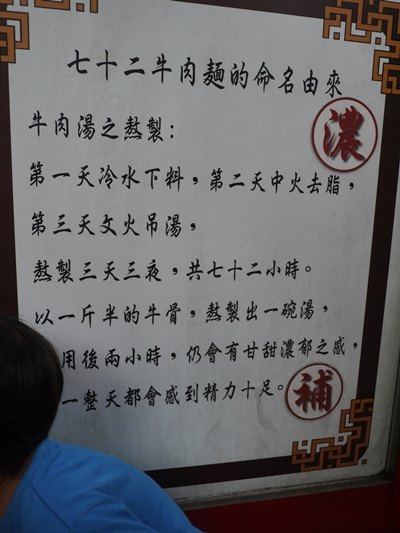 七十二牛肉麵的命名由來
牛肉湯之熬製:
濃
第一天冷水下料，第二天中火去脂，
第三天文火吊湯，
熬製三天三夜，共七十二小時。
以一斤半的牛骨，熬製出一碗湯，
用後兩小時，仍會有甘甜濃郁之感，
一整天都會感到精力十足。
補